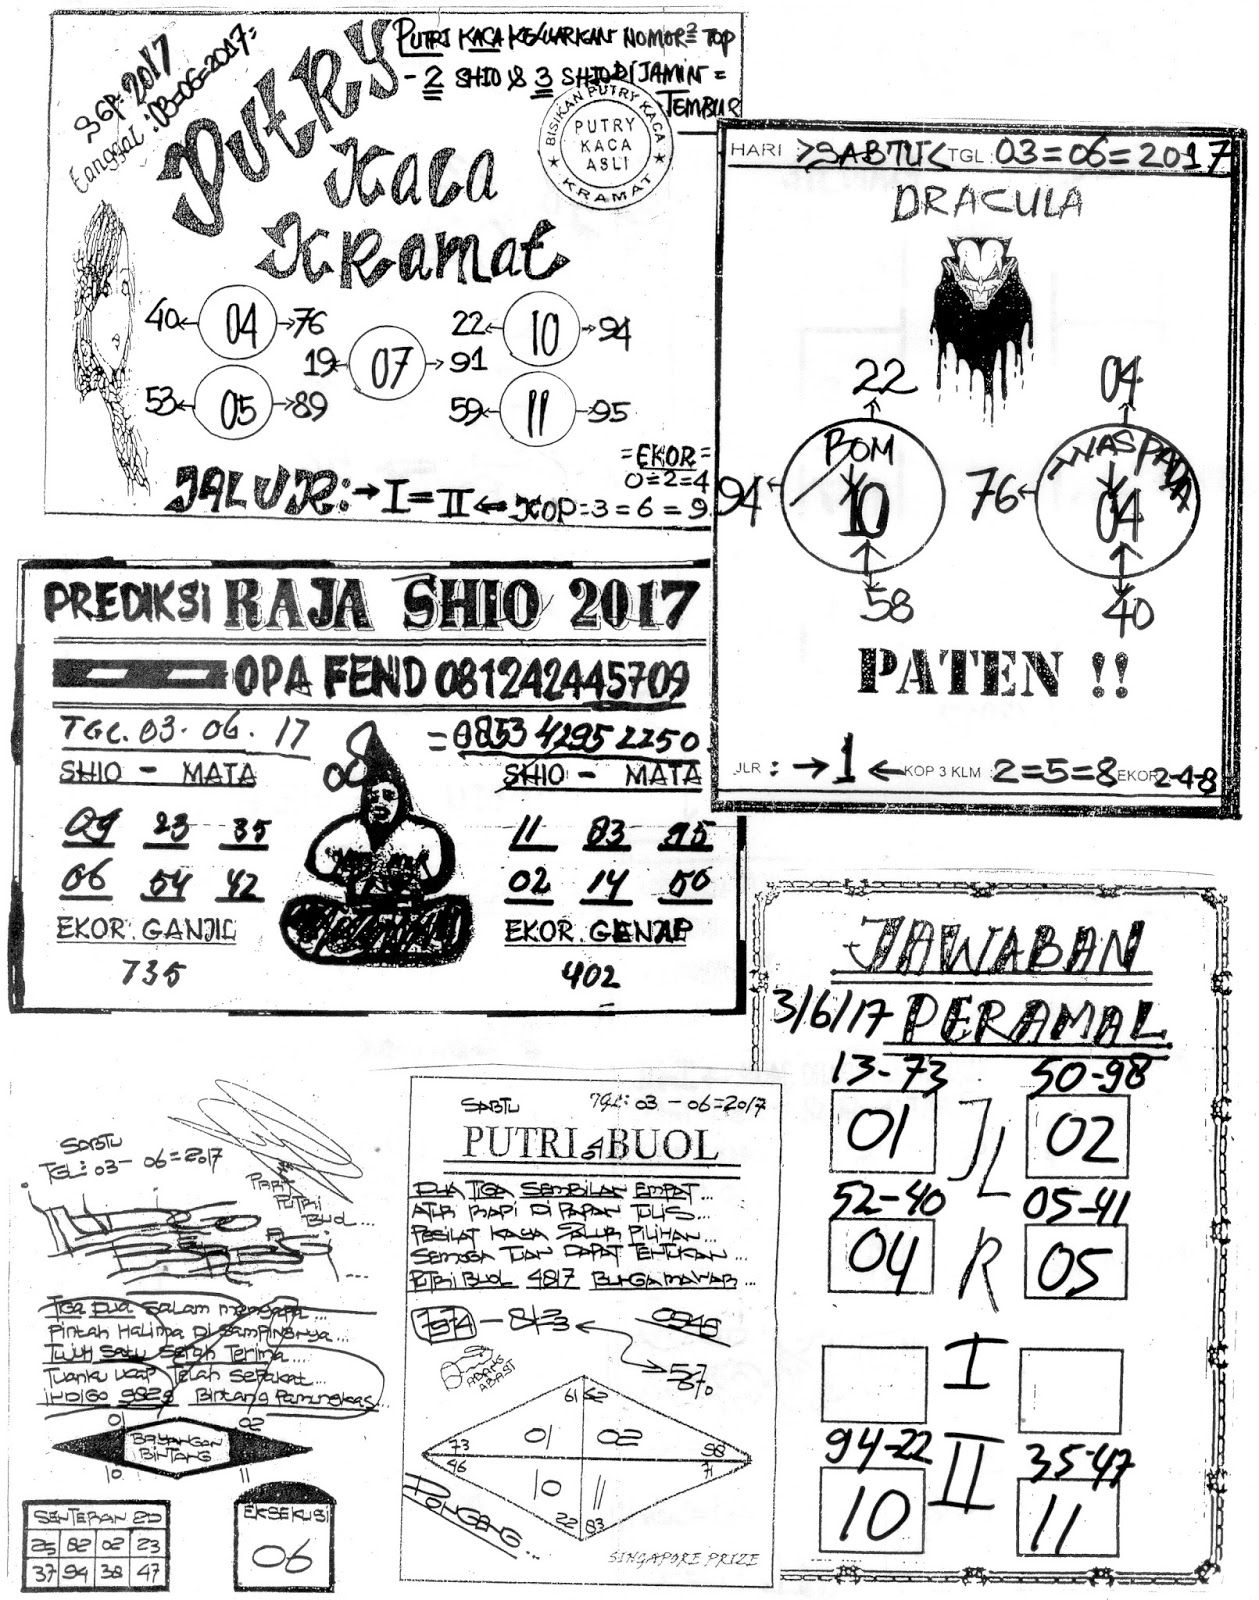 SGP: 2017
Tanggal: 03=06=2017=
PUTRY
Kaca
Kramat
PUTRI KACA KELUARKAN NOMOR² TOP
- 2 SHIO & 3 SHIO DI JAMIN =
TEMBUS
BISIKAN PUTRY KACA
PUTRY
KACA
ASLI
★ KRAMAT ★
40 04 76
22 10 94
19 07 91
53 05 89
59 11 95
= EKOR =
0=2=4
JALUR: → I = II ← KOP = 3 = 6 = 9
HARI >SABTU< TGL: 03=06=2017
DRACULA
22 04
BOM WASPADA
94 10 76 04
58 40
PATEN !!
JLR : → 1 ← KOP 3 KLM : 2=5=8 EKOR 2-4-8
PREDIKSI RAJA SHIO 2017
OPA FEND 081242445709
TGL. 03. 06. 17 = 0853 4295 2250
SHIO - MATA SHIO - MATA
09 23 35 11 83 95
06 54 42 02 14 50
EKOR. GANJIL EKOR. GENAP
735 402
JAWABAN
3/6/17 PERAMAL
13-73 50-98
01 JL 02
52-40 05-41
04 R 05
I
94-22 II 35-47
10 11
SABTU
TGL: 03- 06=2017
PUTRI
BUOL...
TIGA DUA SALAM MENGAPA...
PINTAH HALIMA DI SAMPINGNYA...
TUJUH SATU SERAH TERIMA...
TUANKU UCAP TELAH SEPAKAT...
INDIGO BINTANG PAMUNGKAS...
01 02
BAYANGAN
BINTANG
10 11
SENTERAN 2D
25 82 02 23
37 94 38 47
EKSEKUSI
06
SABTU TGL: 03 - 06=2017
PUTRI BUOL
DUA TIGA SEMBILAN EMPAT...
ATUR RAPI DI PAPAN TULIS...
PESILAT KAYA JALUR PILIHAN...
SEMOGA TUAN DAPAT TENTUKAN...
PUTRI BUOL 4817 BUNGA MAWAR...
7974 - 813
0546
61 52
73 01 02 98
46 10 11 71
22 83
SINGAPORE PRIZE